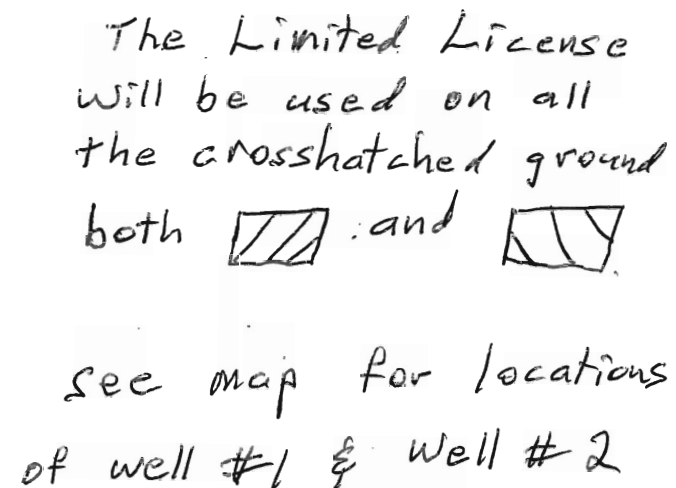 The Limited License
will be used on all
the crosshatched ground
both and
see map for locations
of well #1 & Well #2